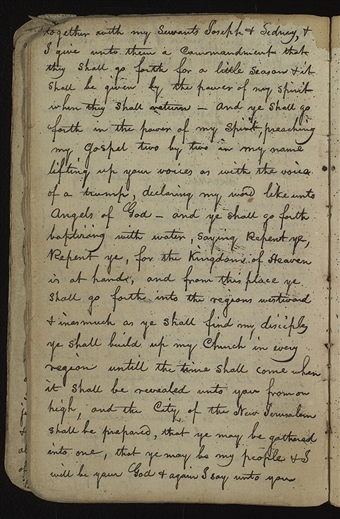 together with my Servants Joseph & Sidney, &
I give unto them a Commandment that
they shall go forth for a little season & it
shall be given by the power of my spirit
when they shall return – And ye shall go
forth in the power of my Spirit, preaching
my Gospel two by two in my name
lifting up your voices as with the voice
of a trump, declaring my word like unto
Angels of God – and ye shall go forth
baptizing with water, saying Repent ye,
Repent ye, for the Kingdom of Heaven
is at hand, and from this place ye
shall go forth into the regions westward
& inasmuch as ye shall find my disciples
ye shall build up my Church in every
region untill the time shall come when
it shall be revealed unto you from on
high, and the City of the New Jerusalem
shall be prepared, that ye may be gathered
into one, that ye may be my people & I
will be your God & again I say unto you